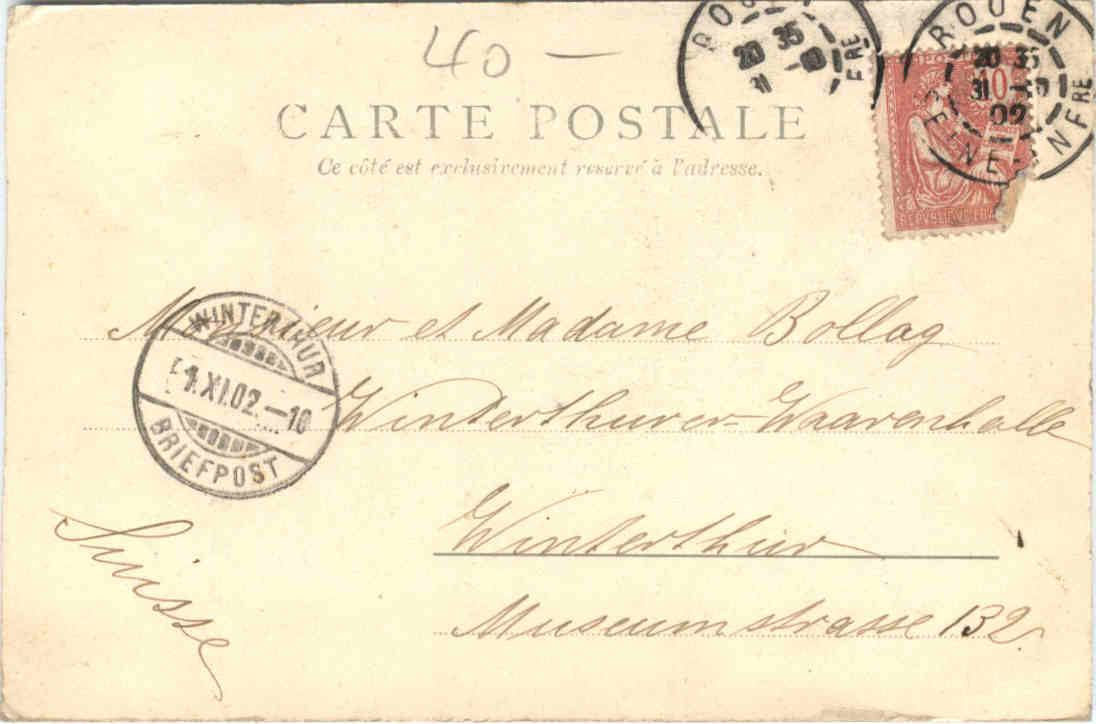 40 —
CARTE POSTALE
Ce côté est exclusivement reservé à l'adresse.
ROUEN
20 35
31
FRE
ROUEN
20 35
31
02
NFRE
10
WINTERTHUR
1.XI.02.–10
BRIEFPOST
Monsieur et Madame Bollag
Winterthurer-Waarenhalle
Winterthur
Museumstrasse 132
Suisse